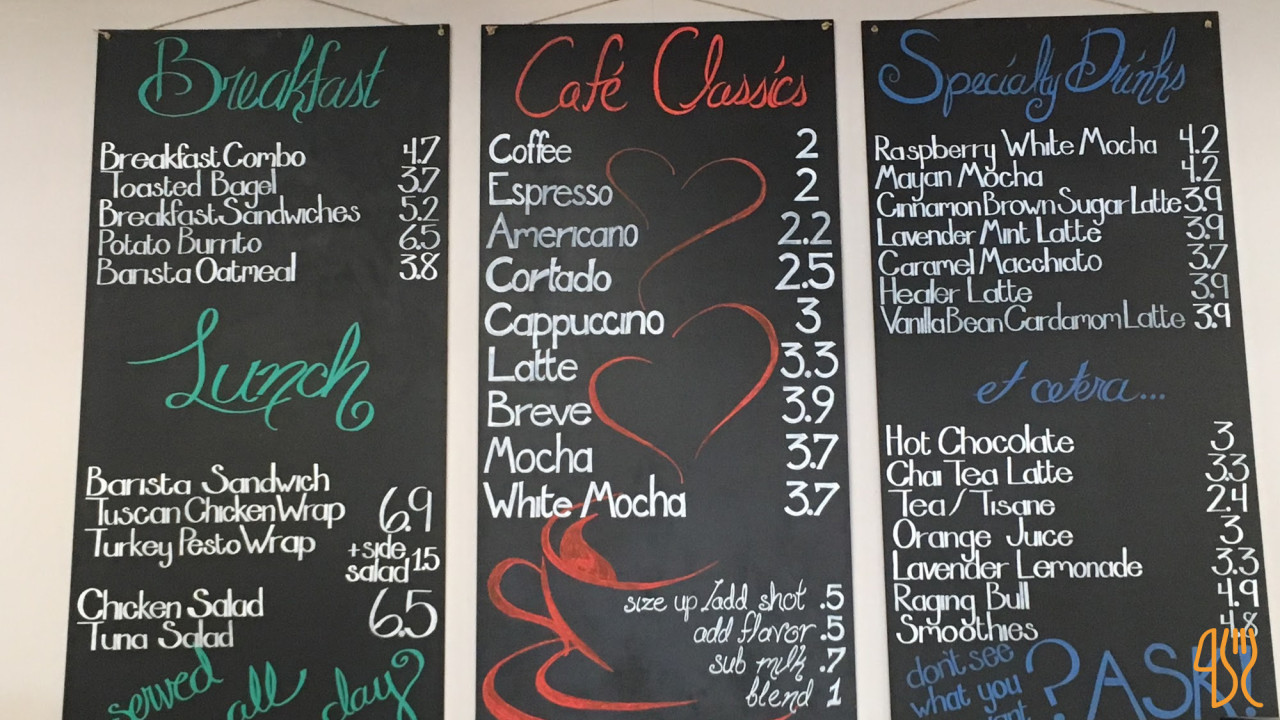 Breakfast
Breakfast Combo 4.7
Toasted Bagel 3.7
Breakfast Sandwiches 5.2
Potato Burrito 6.5
Barista Oatmeal 3.8
Lunch
Barista Sandwich
Tuscan Chicken Wrap 6.9
Turkey Pesto Wrap
+side salad 1.5
Chicken Salad 6.5
Tuna Salad
served
all day?
Café Classics
Coffee 2
Espresso 2
Americano 2.2
Cortado 2.5
Cappuccino 3
Latte 3.3
Breve 3.9
Mocha 3.7
White Mocha 3.7
size up/add shot .5
add flavor .5
sub milk .7
blend 1
Specialty Drinks
Raspberry White Mocha 4.2
Mayan Mocha 4.2
Cinnamon Brown Sugar Latte 3.9
Lavender Mint Latte 3.9
Caramel Macchiato 3.7
Healer Latte 3.9
Vanilla Bean Cardamom Latte 3.9
et cetera...
Hot Chocolate 3
Chai Tea Latte 3.3
Tea/Tisane 2.4
Orange Juice 3
Lavender Lemonade 3.3
Raging Bull 4.9
Smoothies 4.8
don't see
what you
? ASK!